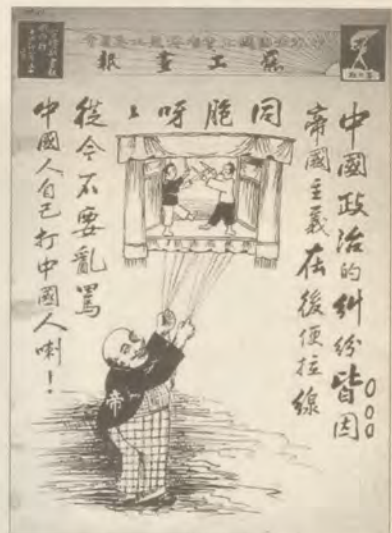 罷工畫報
中國政治的糾紛皆因○○○
帝國主義在後便拉線
同胞呀！
從今不要亂罵
中國人自己打中國人喇！
帝